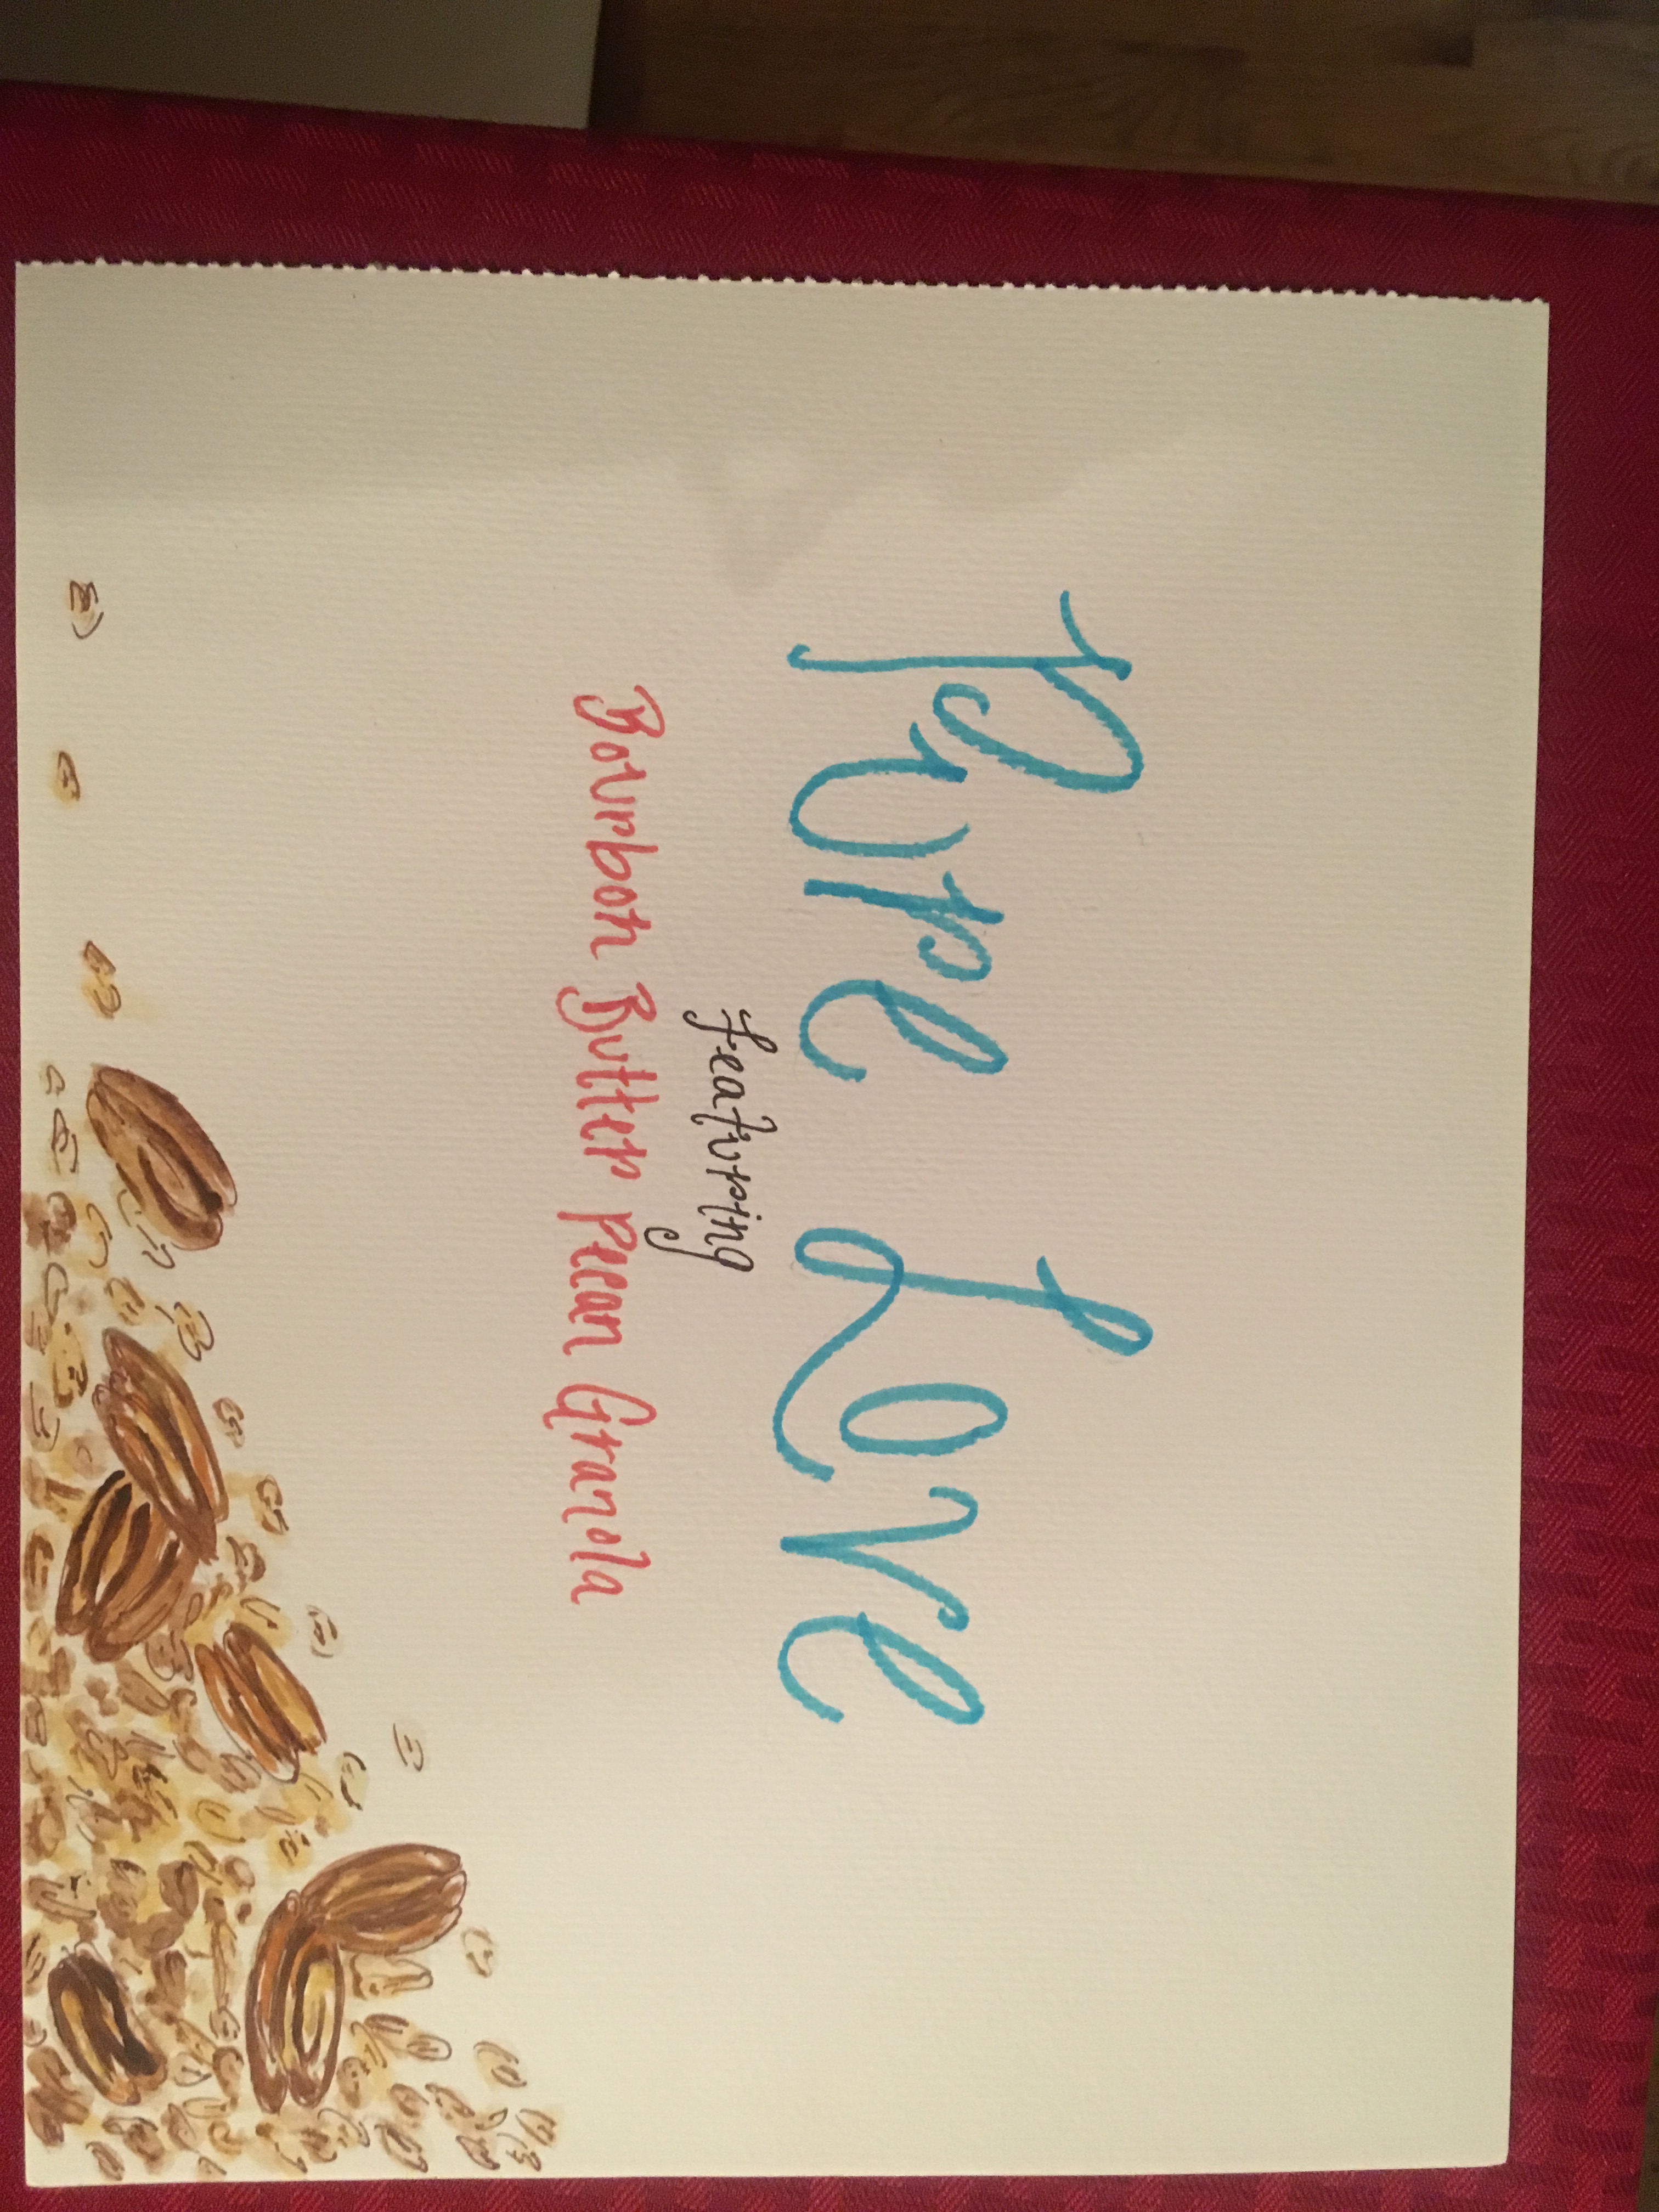 Pure Love
featuring
Bourbon Butter Pecan Granola